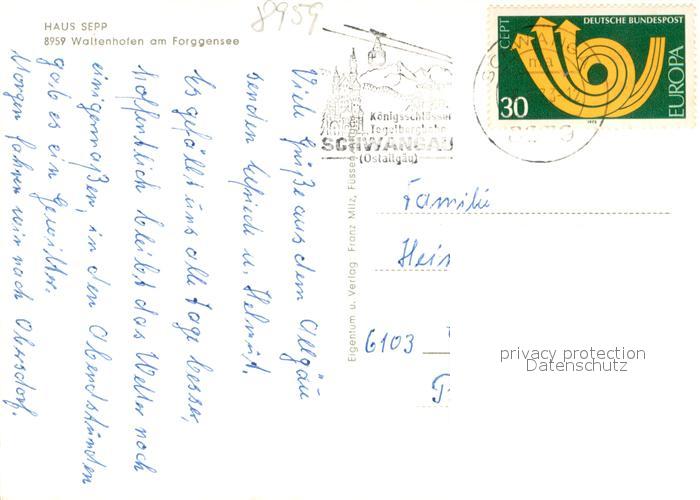 HAUS SEPP
8959 Waltenhofen am Forggensee
8959
Viele Grüße aus dem Allgäu
senden Elfriede u. Helmut.
Es gefällt uns alle Tage besser,
hoffentlich bleibt das Wetter noch
einigermaßen, in den Abendstunden
gab es ein Gewitter.
Morgen fahren wir nach Oberstdorf.
Eigentum u. Verlag Franz Milz, Füssen
Königsschlösser
Tegelbergbahn
SCHWANGAU
(Ostallgäu)
CEPT
DEUTSCHE BUNDESPOST
EUROPA
30
1973
Familie
Hein
6103
privacy protection
Datenschutz